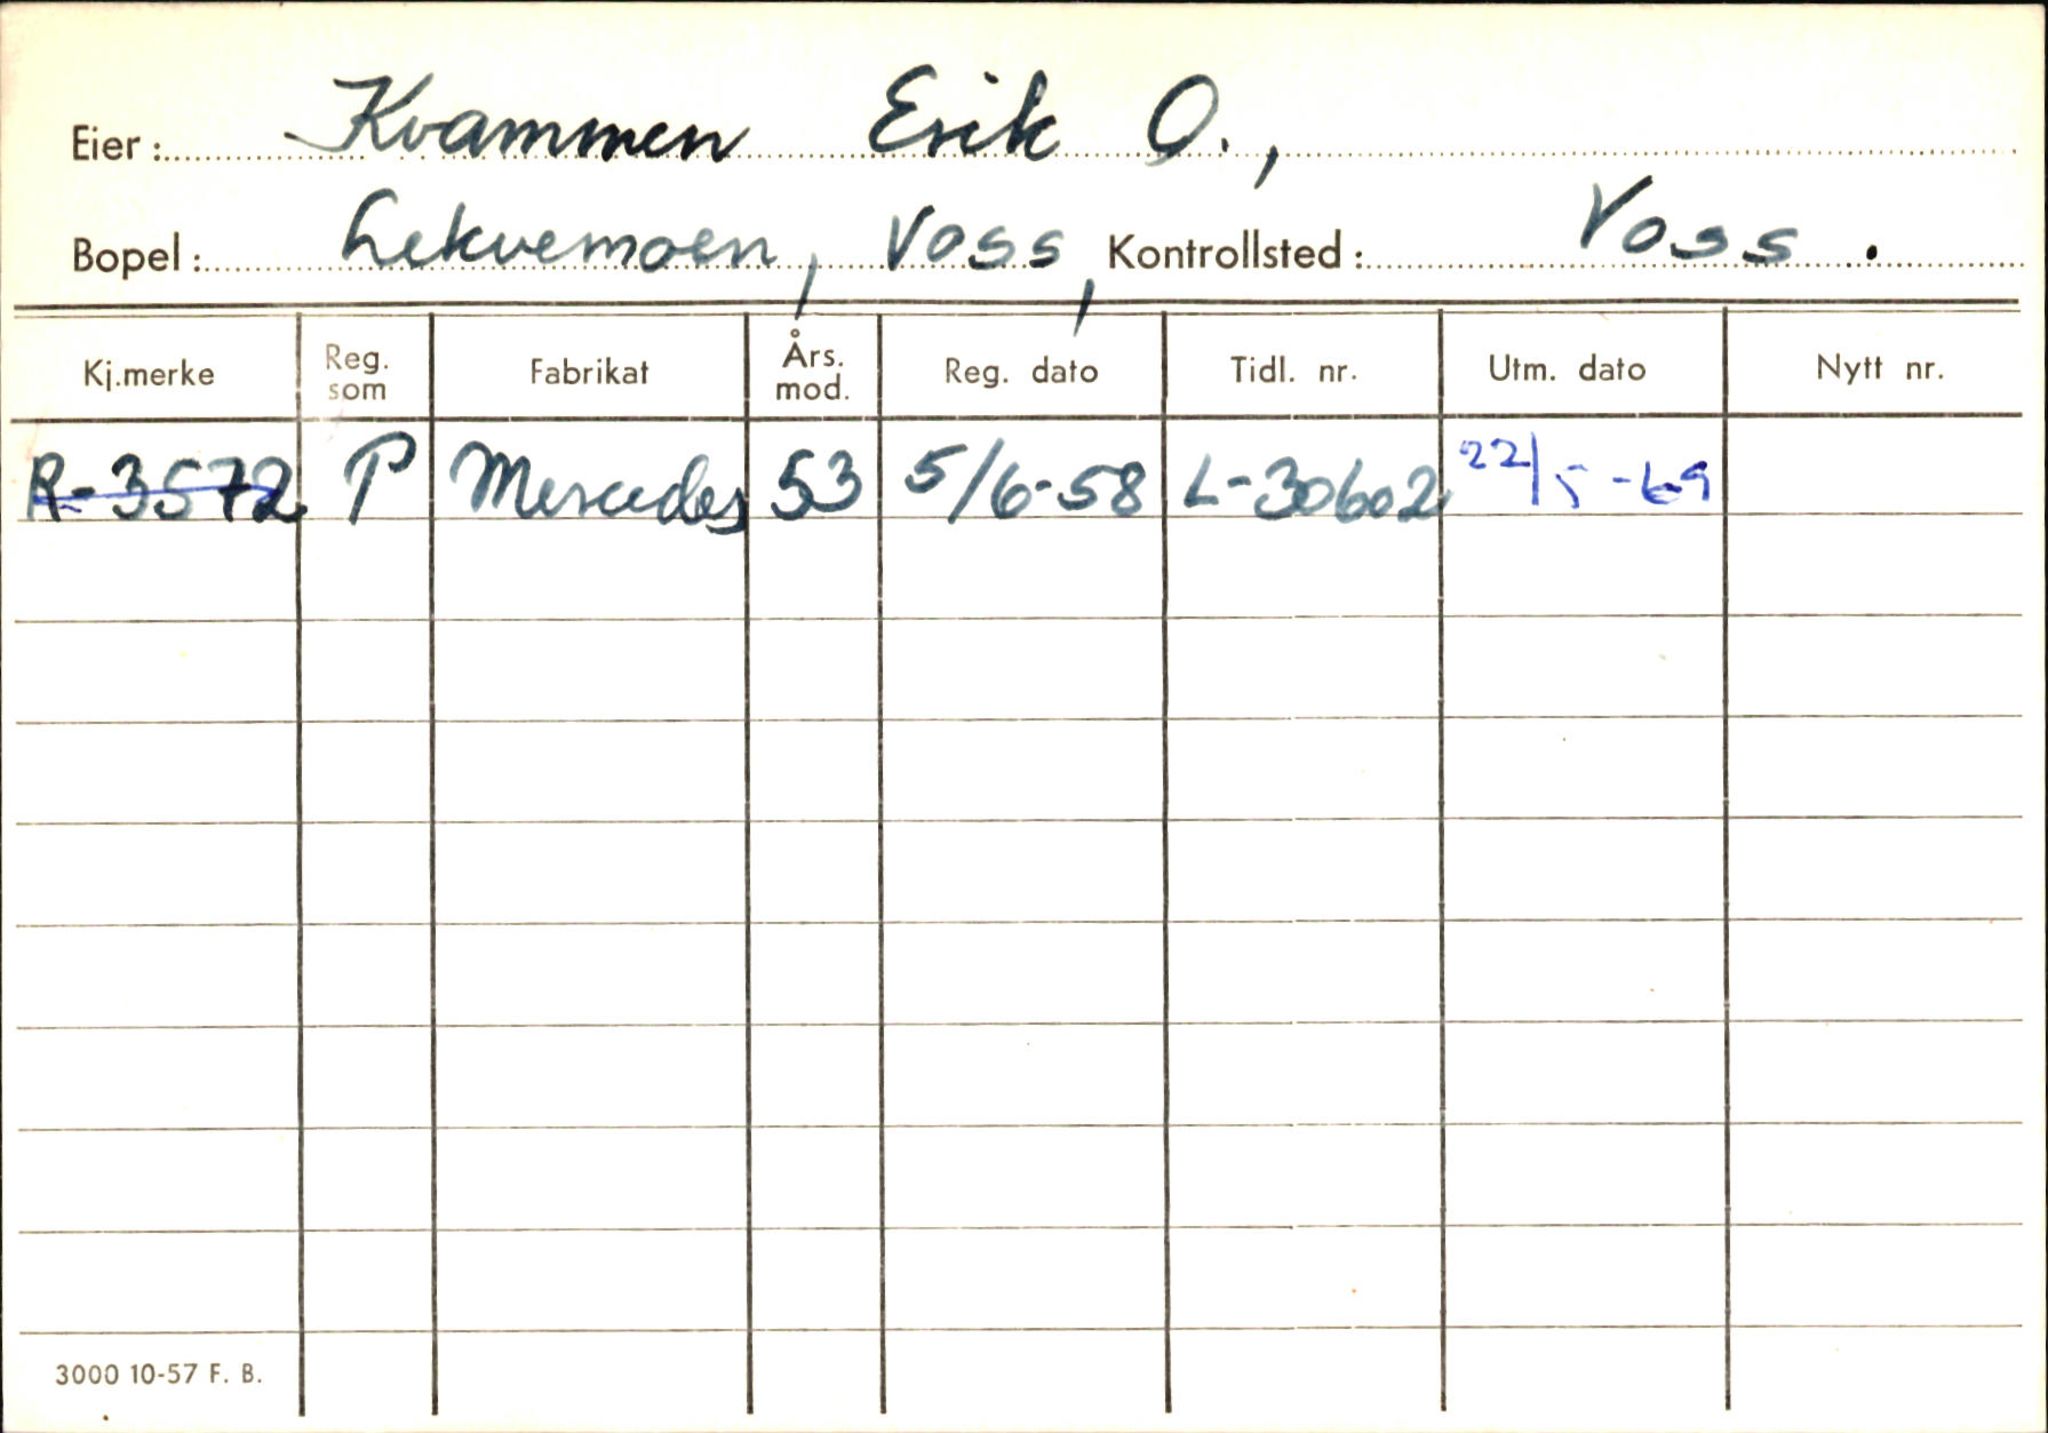 Eier: Kvammen Erik O.,
Bopel: Lekvemoen, Voss, Kontrollsted: Voss.
Kj.merke Reg. som Fabrikat Års. mod. Reg. dato Tidl. nr. Utm. dato Nytt nr.
R-3572 P Mercedes 53 5/6-58 L-30602 22/5-69
3000 10-57 F. B.